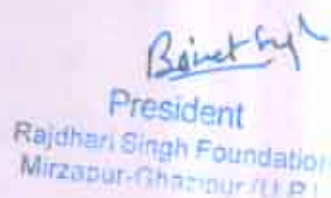 President
Rajdhari Singh Foundation
Mirzapur-Ghazipur (U.P.)